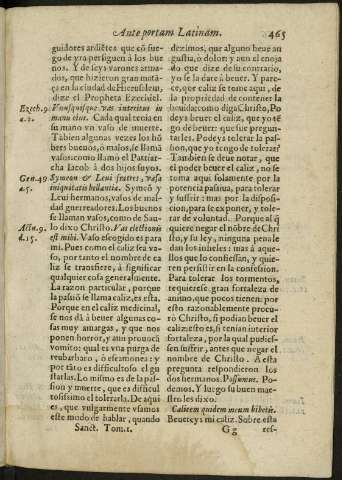 Ante portam Latinam.
465
guidores ardiẽtes que cõ fue-
go de yra persiguen à los bue
nos. Y de seys varones arma-
dos, que hizieron gran matã-
ça en la ciudad de Hierusalem,
dize el Propheta Ezechiel.
Ezech. 9.
a. 2.
Vnusquisque vas interitus in
manu eius. Cada qual tenia en
su mano vn vaso de muerte.
Tãbien algunas vezes los hõ
bres buenos, ò malos, se llamã
vasos: como llamò el Patriar-
cha Iacob à dos hijos suyos.
Gen. 49
a. 5.
Symeon & Leui fratres, vasa
iniquitatis bellantia. Symeõ y
Leui hermanos, vasos de mal-
dad guerreadores. Los buenos
se llaman vasos, como de Sau-
Actu. 9.
d. 15.
lo dixo Christo. Vas electionis
est mihi. Vaso escogido es para
mi. Pues como el caliz sea va-
so, por tanto el nombre de ca
liz se transfiere, à significar
qualquier cosa generalmente.
La razon particular, porque
la passiõ se llama caliz, es esta.
Porque en el caliz medicinal,
se nos dà à beuer algunas co-
sas muy amargas, y que nos
ponen horror, y aun prouocã
vomito: qual es vna purga de
reubarbaro, ò escamonea: y
por tãto es difficultoso el gu
starlas. Lo mismo es de la pas-
sion y muerte, que es difficul
tosissimo el tolerarla. De aqui
es, que vulgarmente vsamos
este modo de hablar, quando
Sanct. Tom. 1.
dezimos, que alguno beue an
gustia, ò dolor: y aun el enoja
do que dize de su contrario,
yo se la darè à beuer. Y pare-
ce, que caliz se tome aqui, de
la propriedad de contener la
beuida: como diga Christo, Po
deys beuer el caliz, que yo tẽ
go de beuer: que fue pregun-
tarles. Podeys tolerar la pas-
sion, que yo tengo de tolerar?
Tambien se deue notar, que
el poder beuer el caliz, no se
toma aqui solamente por la
potencia passiua, para tolerar
y suffrir: mas por la disposi-
cion, para se exponer, y tole-
rar de voluntad. Porque al q̃
quiere negar el nõbre de Chri
sto, y su ley, ninguna pena le
dan los infieles: mas à aque-
llos que lo confiessan, y quie-
ren persistir en la confession.
Para tolerar los tormentos,
requierese gran fortaleza de
animo, que pocos tienen: por
esto razonablemente procu-
rò Christo, si podian beuer el
caliz: esto es, si tenian interior
fortaleza, por la qual pudies-
sen suffrir, antes que negar el
nombre de Christo. A esta
pregunta respondieron los
dos hermanos. Possumus. Po-
demos. Y luego su buen mae-
stro les dixo.
Calicem quidem meum bibetis.
Beuereys mi caliz. Sobre esta
Gg
res-